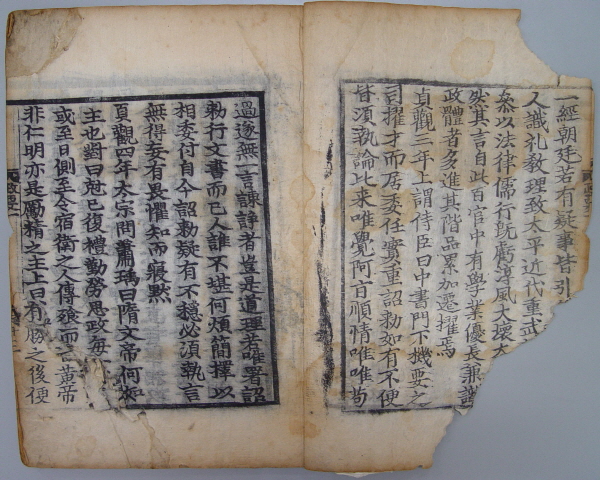 一經朝廷若有疑事皆引
人識礼教理致太平近代重武
參以法律儒行旣虧淳風大壞太
然其言自此百官中有學業優長兼識
政體者多進其階品累加遷擢焉
貞觀三年上謂侍臣曰中書門下機要之
司擢才而居委任實重詔勑如有不便
皆須執論比来唯覺阿旨順情唯唯苟
過遂無一言諫諍者豈是道理若唯署詔
勑行文書而已人誰不堪何煩簡擇以
相委付自今詔勑疑有不穩必須執言
無得妄有畏懼知而寢黙
貞觀四年太宗問蕭瑀曰隋文帝何如
主也對曰尅已復禮勤勞思政每
或至日側至令宿衛之人傳飱而
非仁明亦是厲精之主上曰
政要二